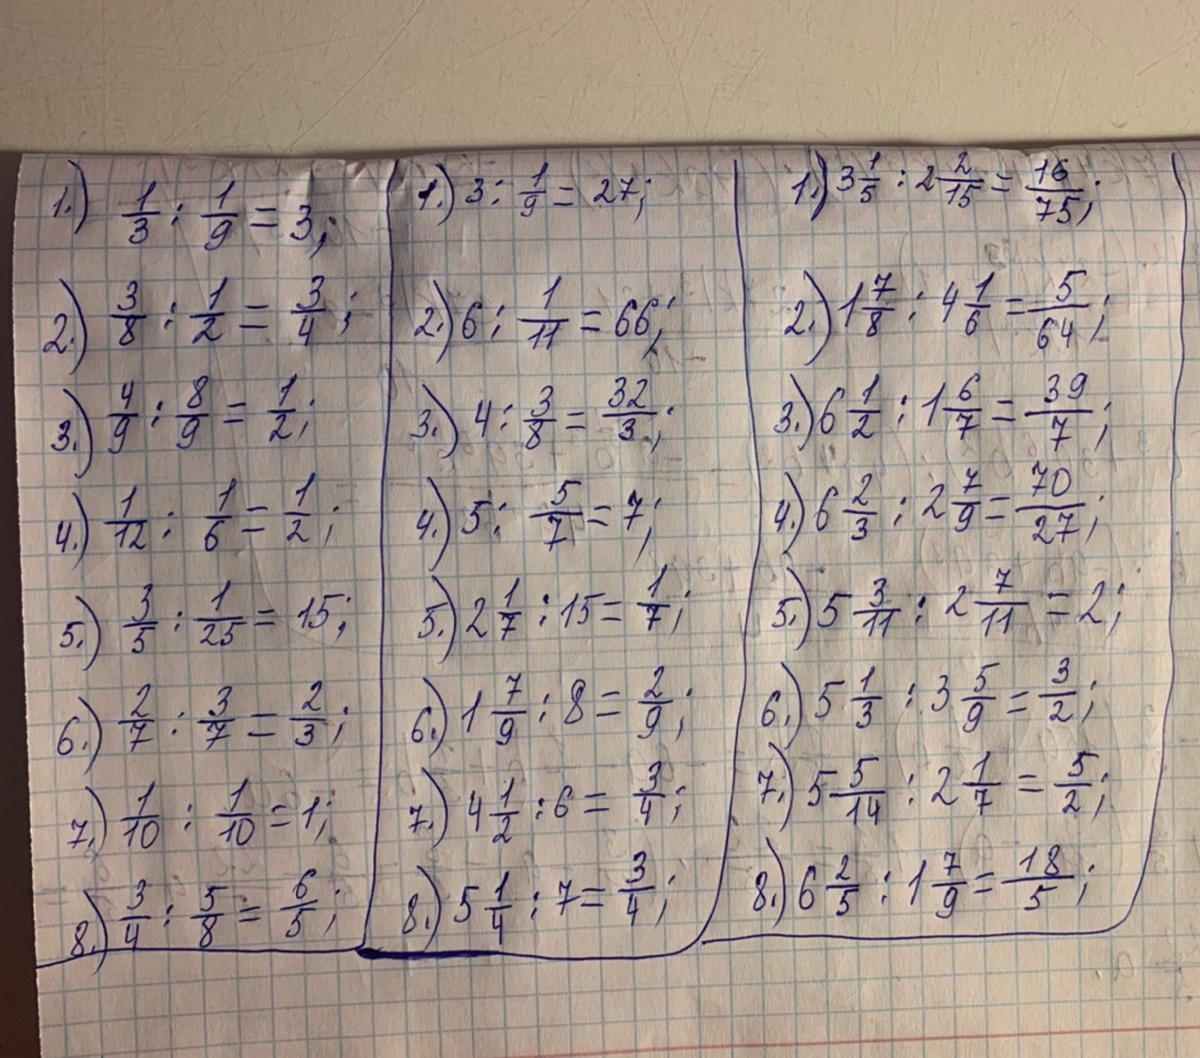 1.) 1/3 : 1/9 = 3;
2.) 3/8 : 1/2 = 3/4;
3.) 4/9 : 8/9 = 1/2;
4.) 1/12 : 1/6 = 1/2;
5.) 3/5 : 1/25 = 15;
6.) 2/7 : 3/7 = 2/3;
7.) 1/10 : 1/10 = 1;
8.) 3/4 : 5/8 = 6/5;
1.) 3 : 1/9 = 27;
2.) 6 : 1/11 = 66;
3.) 4 : 3/8 = 32/3;
4.) 5 : 5/7 = 7;
5.) 2 1/7 : 15 = 1/7;
6.) 1 7/9 : 8 = 2/9;
7.) 4 1/2 : 6 = 3/4;
8.) 5 1/4 : 7 = 3/4;
1.) 3 1/5 : 2 2/15 = 16/75;
2.) 1 7/8 : 4 1/6 = 5/64;
3.) 6 1/2 : 1 6/7 = 39/7;
4.) 6 2/3 : 2 7/9 = 70/27;
5.) 5 3/11 : 2 7/11 = 2;
6.) 5 1/3 : 3 5/9 = 3/2;
7.) 5 5/14 : 2 1/7 = 5/2;
8.) 6 2/5 : 1 7/9 = 18/5;